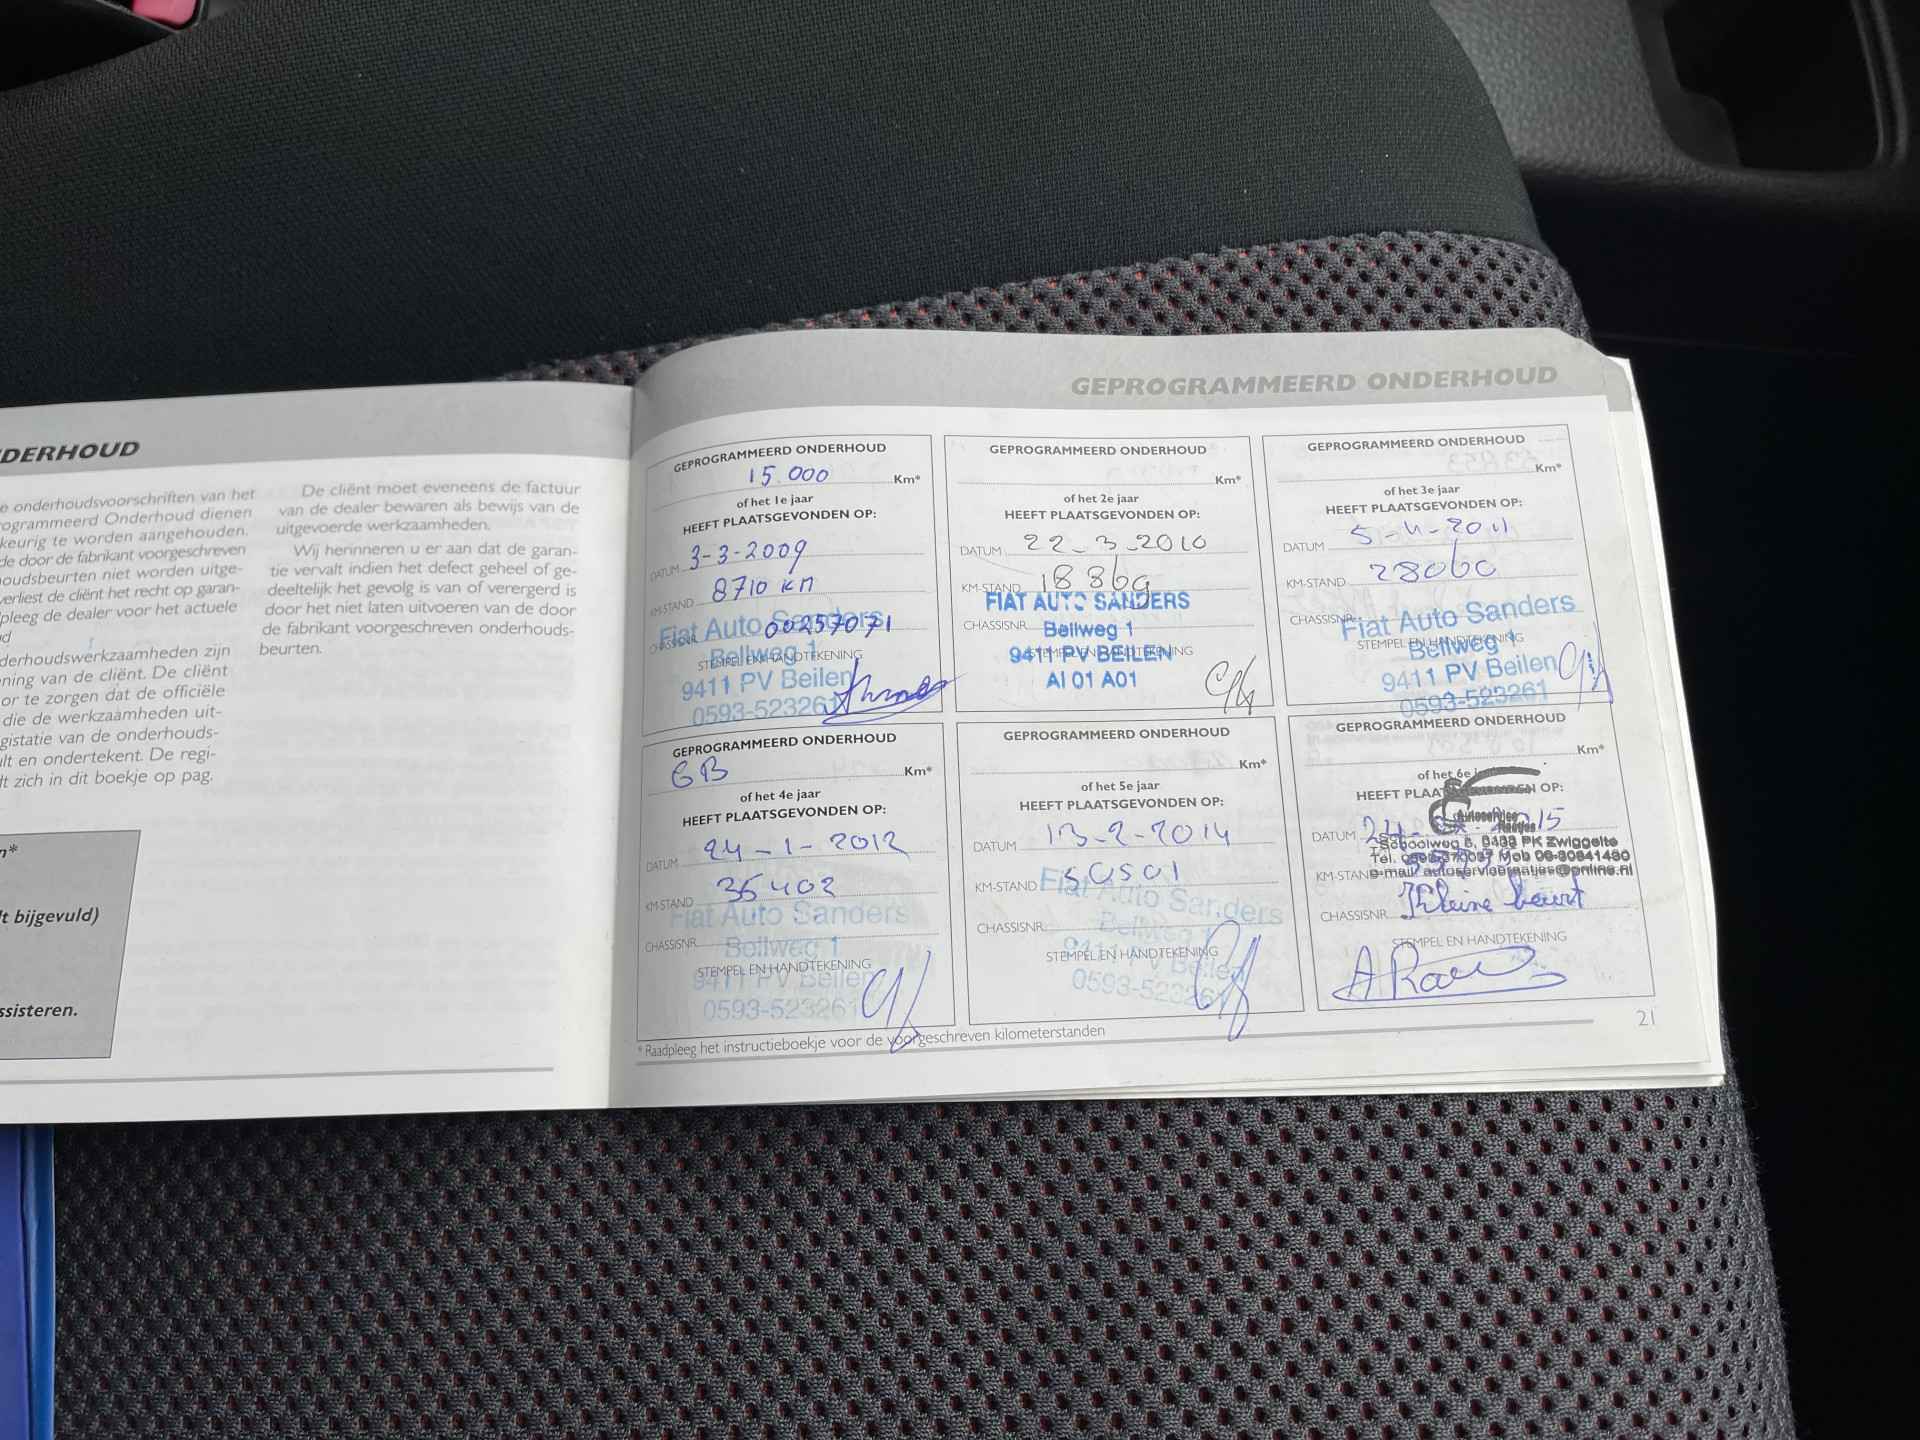 DERHOUD
e onderhoudsvoorschriften van het
ogrammeerd Onderhoud dienen
keurig te worden aangehouden.
de door de fabrikant voorgeschreven
oudsbeurten niet worden uitge-
verliest de cliënt het recht op garan-
pleeg de dealer voor het actuele
d
derhoudswerkzaamheden zijn
ning van de cliënt. De cliënt
or te zorgen dat de officiële
die de werkzaamheden uit-
gistatie van de onderhouds-
ult en ondertekent. De regi-
dt zich in dit boekje op pag.
n*
lt bijgevuld)
ssisteren.
De cliënt moet eveneens de factuur
van de dealer bewaren als bewijs van de
uitgevoerde werkzaamheden.
Wij herinneren u er aan dat de garan-
tie vervalt indien het defect geheel of ge-
deeltelijk het gevolg is van of verergerd is
door het niet laten uitvoeren van de door
de fabrikant voorgeschreven onderhouds-
beurten.
GEPROGRAMMEERD ONDERHOUD
GEPROGRAMMEERD ONDERHOUD
15.000 Km*
of het 1e jaar
HEEFT PLAATSGEVONDEN OP:
DATUM 3-3-2009
KM-STAND 8710 KM
CHASSISNR. 00257071
STEMPEL EN HANDTEKENING
Fiat Auto Sanders
Beilweg 1
9411 PV Beilen
0593-523261
GEPROGRAMMEERD ONDERHOUD
Km*
of het 2e jaar
HEEFT PLAATSGEVONDEN OP:
DATUM 22-3-2010
KM-STAND 18869
FIAT AUTO SANDERS
CHASSISNR.
Beilweg 1
STEMPEL EN HANDTEKENING
9411 PV BEILEN
AI 01 A01
GEPROGRAMMEERD ONDERHOUD
Km*
of het 3e jaar
HEEFT PLAATSGEVONDEN OP:
DATUM 5-4-2011
KM-STAND 28060
CHASSISNR.
Fiat Auto Sanders
STEMPEL EN HANDTEKENING
Beilweg 1
9411 PV Beilen
0593-523261
GEPROGRAMMEERD ONDERHOUD
GB Km*
of het 4e jaar
HEEFT PLAATSGEVONDEN OP:
DATUM 24-1-2012
KM-STAND 35402
Fiat Auto Sanders
CHASSISNR.
Beilweg 1
STEMPEL EN HANDTEKENING
9411 PV Beilen
0593-523261
GEPROGRAMMEERD ONDERHOUD
Km*
of het 5e jaar
HEEFT PLAATSGEVONDEN OP:
DATUM 13-2-2014
KM-STAND 50501
Fiat Auto Sanders
CHASSISNR.
Beilweg 1
STEMPEL EN HANDTEKENING
9411 PV Beilen
0593-523261
GEPROGRAMMEERD ONDERHOUD
Km*
of het 6e
HEEFT PLAATSGEVONDEN OP:
Autoservice
DATUM 24-
Schoolweg 5, PK Zwiggelte
Tel. Mob
KM-STAND
e-mail
CHASSISNR. Kleine beurt
STEMPEL EN HANDTEKENING
* Raadpleeg het instructieboekje voor de voorgeschreven kilometerstanden
21